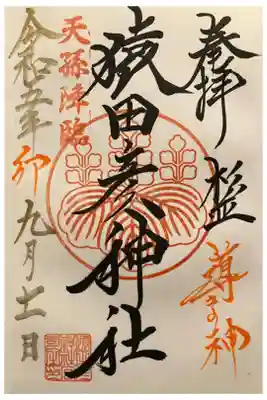 奉拝
導き神
猿田彦神社
天孫降臨
令和五年 卯 九月十一日